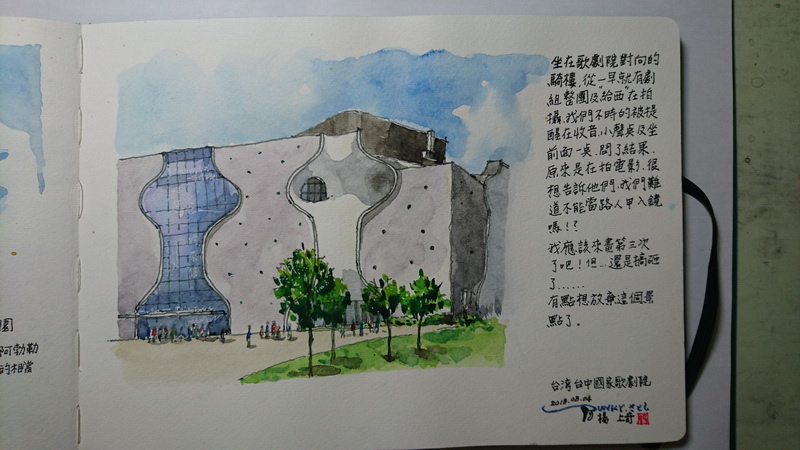 園
阿勃勒
的相當
坐在歌劇院對向的
騎樓,從一早就有劇
組整團及給西"在拍
攝.我們不時的被提
醒在收音,小聲点及坐
前面一点.問了結果.
原來是在拍電影.很
想告訴他們.我們難
道不能當路人甲入鏡
嗎!?
我應該來畫第三次
了吧!但…還是搞砸
了……
有點想放棄這個景
點了。
台湾台中國家歌劇院
2018.08.04
楊